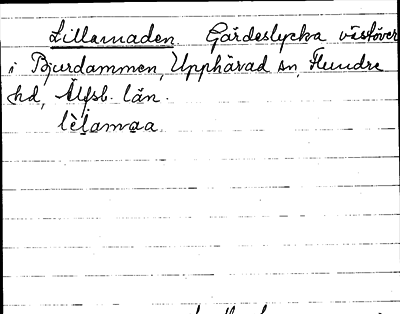 Lillamaden. Gärdeslycka västöver
i Bjurdammen, Upphärad sn, Flundre
hd, Älfsb. län.
lèlamaa